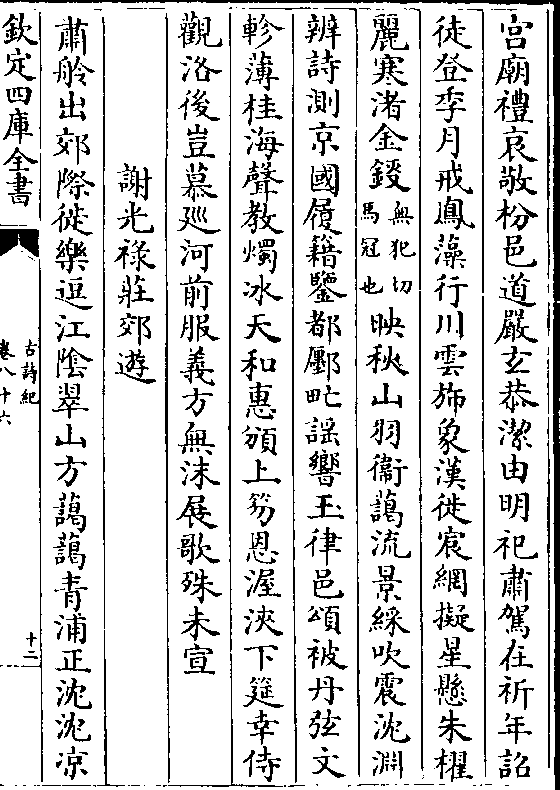 宮廟禮哀敬枌邑道嚴玄恭潔由明祀肅駕在祈年詔
徒登季月戒鳳藻行川雲斾象漢徙宸網擬星懸朱櫂
麗寒渚金鍐無犯切馬冠也映秋山羽衞藹流景綵吹震沈淵
辨詩測京國履籍鑒都壥甿謡響玉律邑頌被丹弦文
軫薄桂海聲教燭冰天和惠頒上笏恩渥浹下筵幸侍
觀洛後豈慕廵河前服義方無沫展歌殊未宣
謝光祿莊郊遊
肅舲出郊際徙樂逗江陰翠山方藹藹青浦正沈沈凉
欽定四庫全書
古詩紀
卷八十六
十二